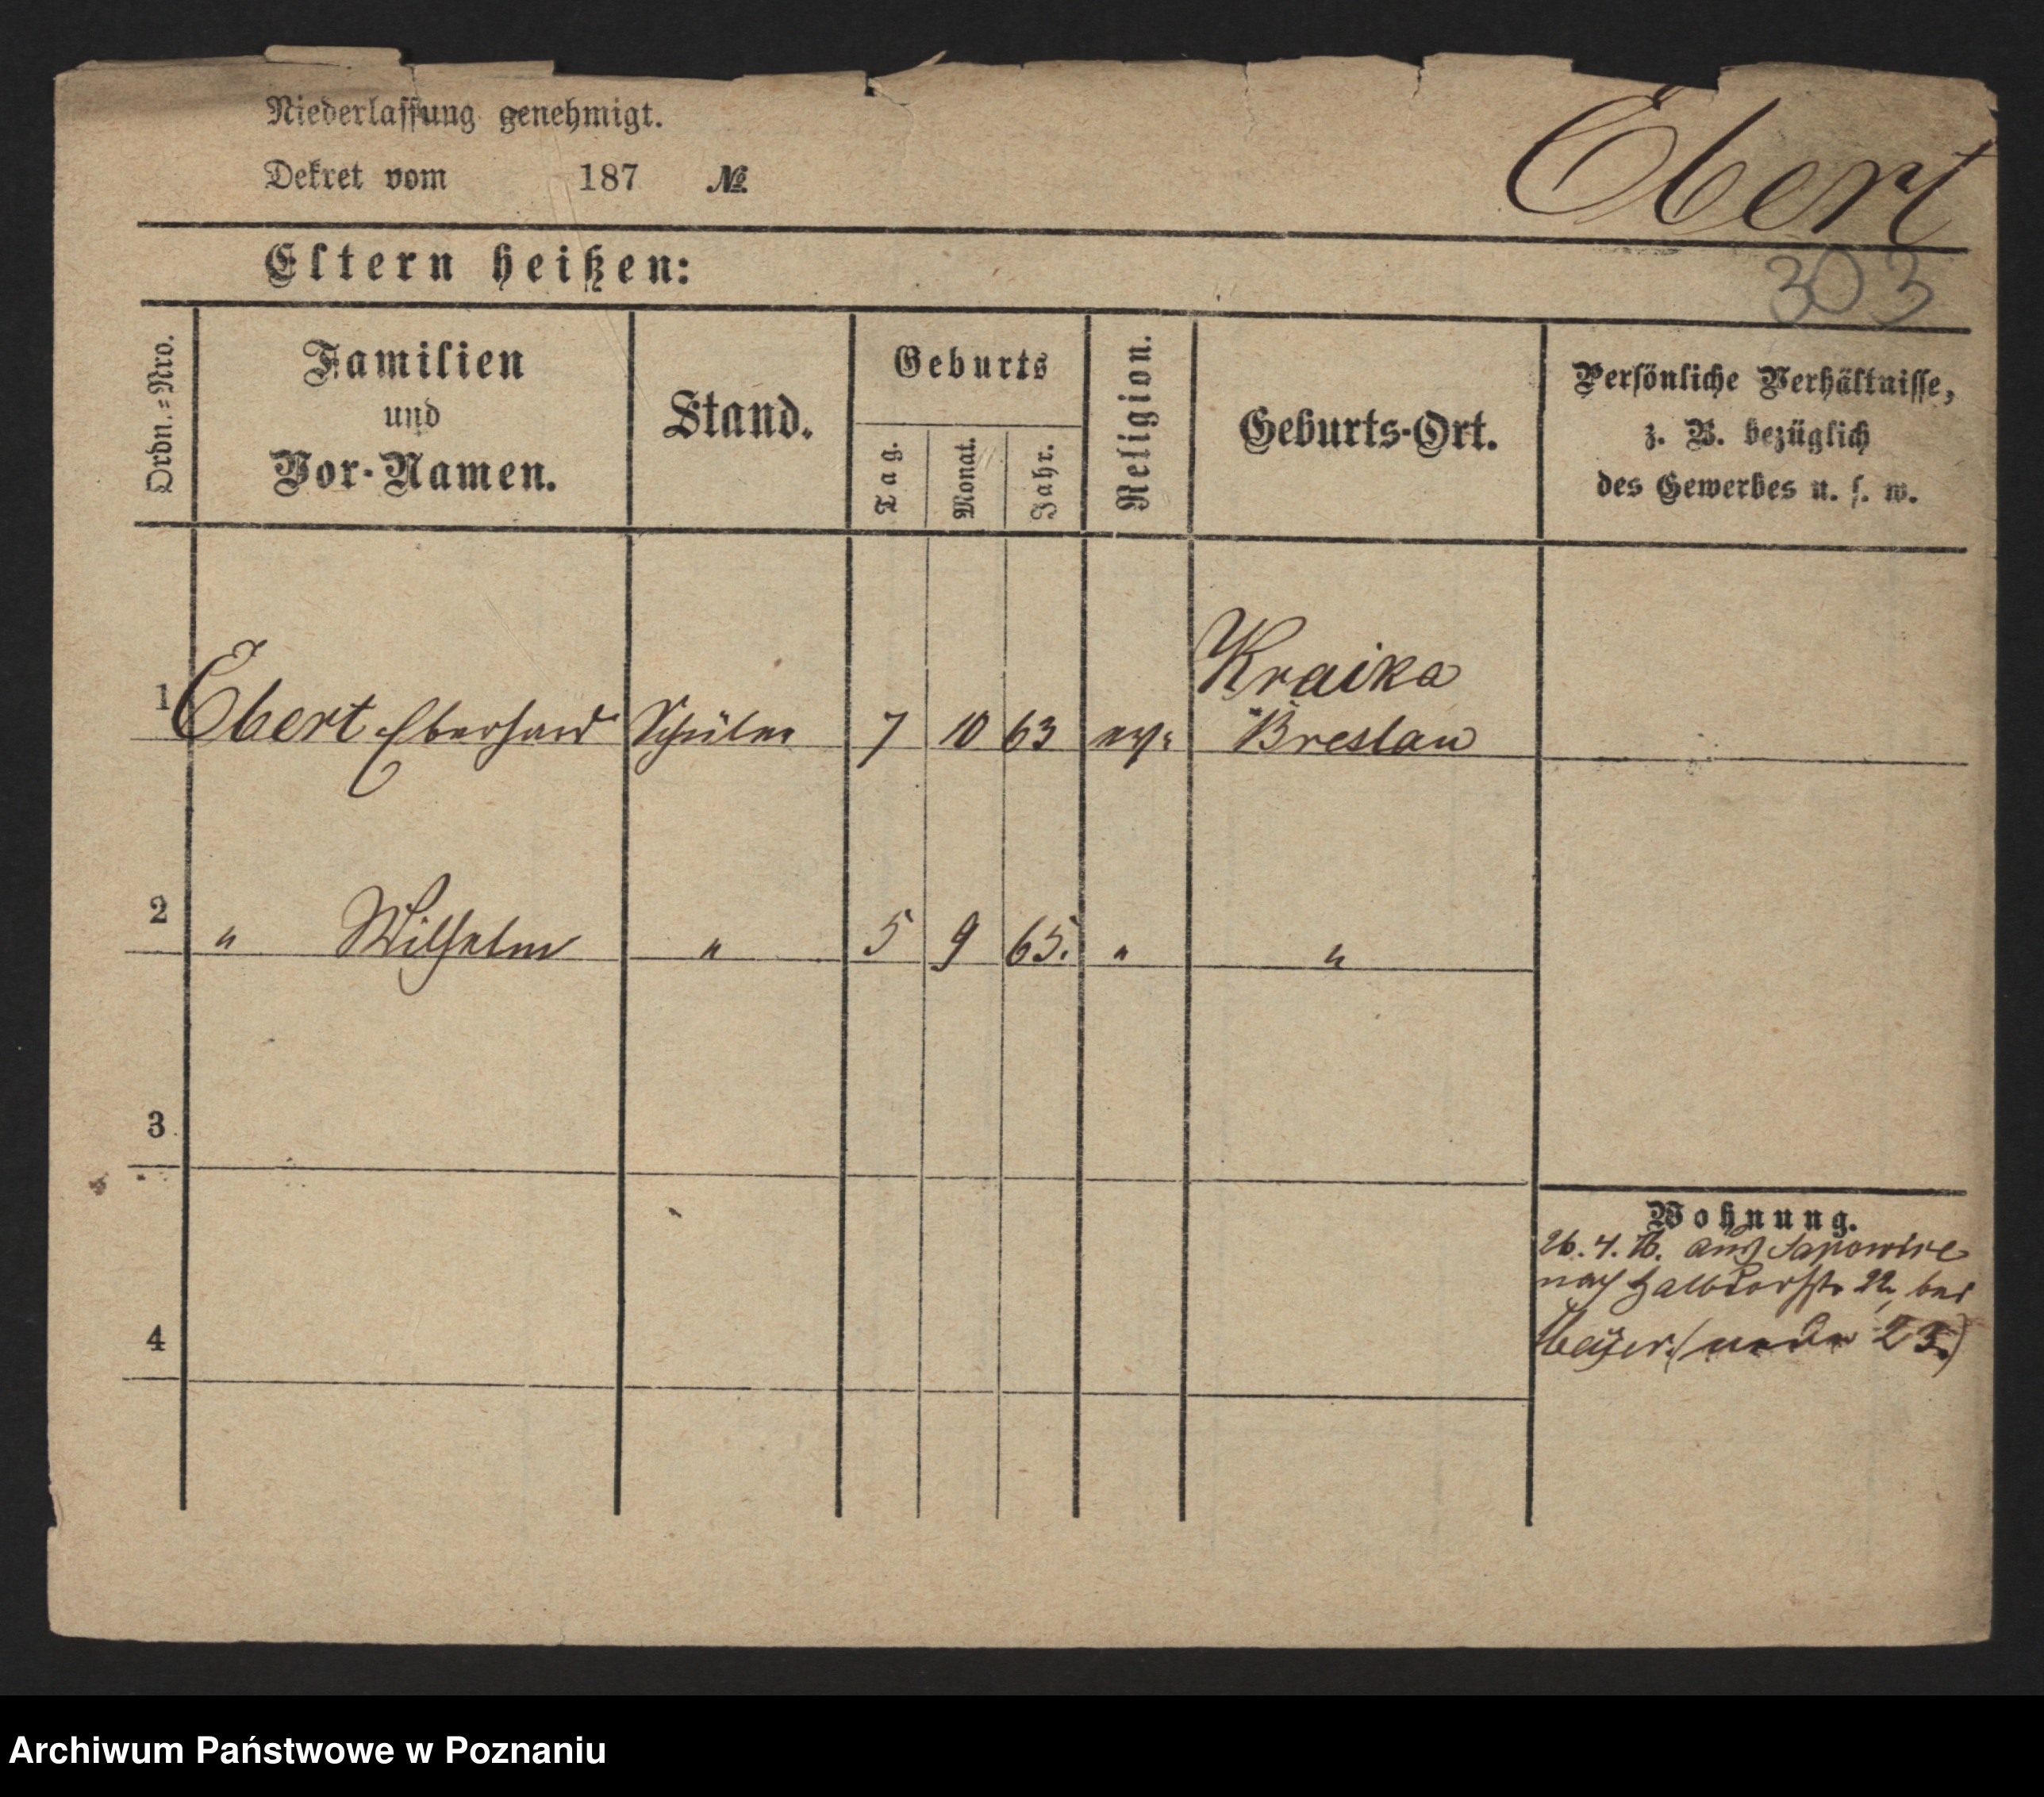 Niederlassung genehmigt.
Dekret vom 187 №
Ebert
Eltern heißen:
303
Ordn.=Nro.
Familien
und
Vor-Namen.
Stand.
Geburts
Tag.
Monat.
Jahr.
Religion.
Geburts-Ort.
Persönliche Verhältnisse,
z. B. bezüglich
des Gewerbes u. s. w.
Kraika
1 Ebert Eberhard Schüler 7 10 63 Breslau
2 " Wilhelm " 5 9 65. " "
3
4
Wohnung.
26. 4. aus
nach Halbdorfstr. 22, bei
Beyer. 23.)
Archiwum Państwowe w Poznaniu